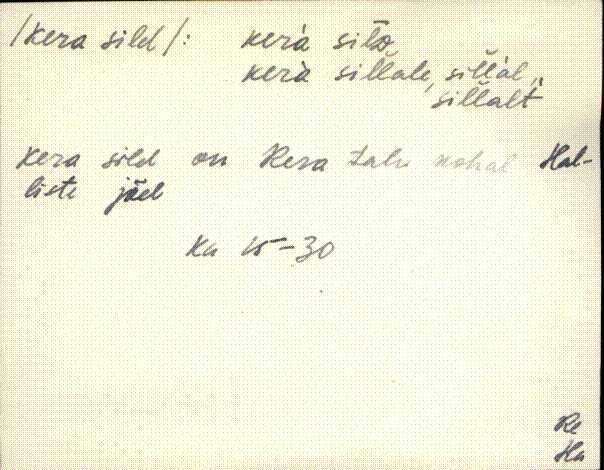 /Kera sild/: kerà sild
kerà sillale, sillàl,
sillalt
Kera sild on Kera talu kohal Hal-
liste jõel
Ka 15-30
Re
Ha